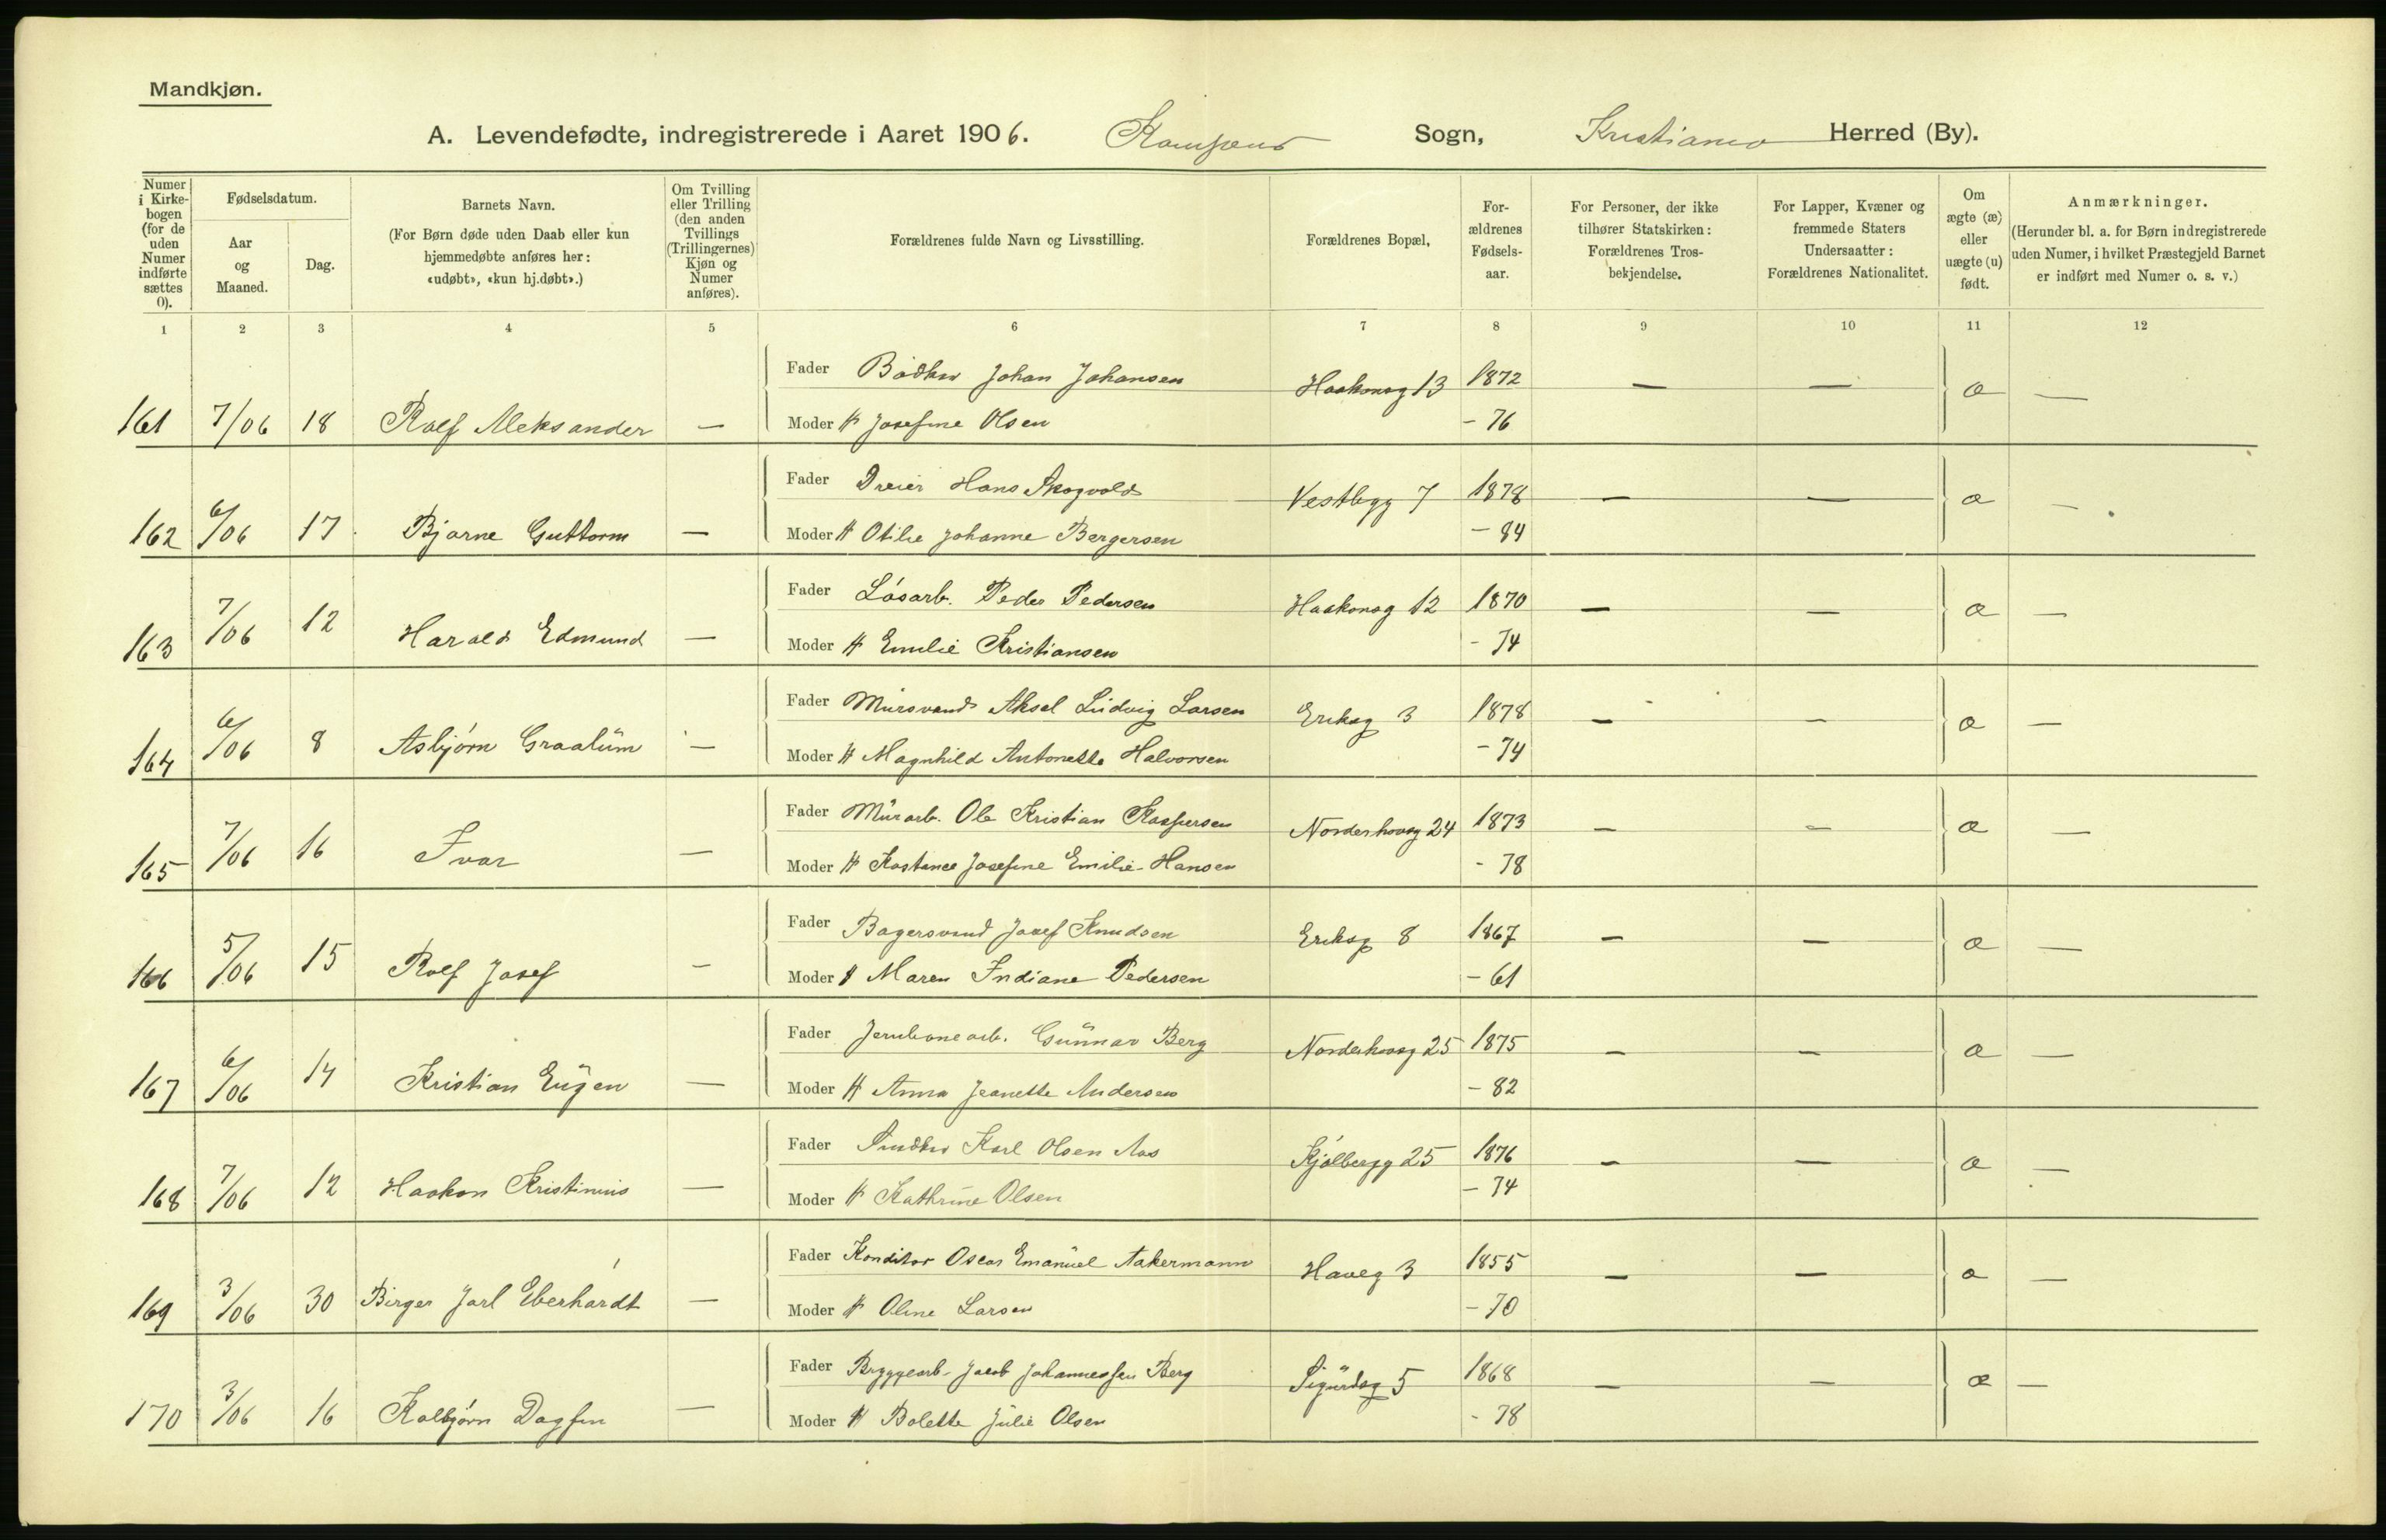 Mandkjøn.
A. Levendefødte, indregistrerede i Aaret 1906. Kampens Sogn, Kristiania Herred (By).
Numer i Kirkebogen (for de uden Numer indførte sættes 0).
Fødselsdatum.
Aar og Maaned.
Dag.
Barnets Navn.
(For Børn døde uden Daab eller kun hjemmedøbte anføres her: «udøbt», «kun hj.døbt».)
Om Tvilling eller Trilling (den anden Tvillings (Trillingernes) Kjøn og Numer anføres).
Forældrenes fulde Navn og Livsstilling.
Forældrenes Bopæl,
Forældrenes Fødselsaar.
For Personer, der ikke tilhører Statskirken: Forældrenes Trosbekjendelse.
For Lapper, Kvæner og fremmede Staters Undersaatter: Forældrenes Nationalitet.
Om ægte (æ) eller uægte (u) født.
Anmærkninger.
(Herunder bl. a. for Børn indregistrerede uden Numer, i hvilket Præstegjeld Barnet er indført med Numer o. s. v.)
1 2 3 4 5 6 7 8 9 10 11 12
Fader Bødker Johan Johansen Haakonsg 13 1872 — — æ —
161 7/06 18 Rolf Aleksander — Moder H Josefine Olsen - 76
Fader Dreier Hans Skogvold Vestbyg 7 1878 — — æ —
162 6/06 17 Bjarne Guttorm — Moder H Otilie Johanne Bergersen - 84
Fader Løsarb. Peder Pedersen Haakonsg 12 1870 — — æ —
163 7/06 12 Harald Edmund — Moder H Emilie Kristiansen - 74
Fader Mursvend Aksel Ludvig Larsen Eriksg 3 1878 — — æ —
164 6/06 8 Asbjørn Graalum — Moder H Magnhild Antonette Halvorsen - 74
Fader Murarb. Ole Kristian Kaspersen Norderhovsg 24 1873 — — æ —
165 7/06 16 Ivar — Moder H Kostance Josefine Emilie Hansen - 78
Fader Bagersvend Josef Knudsen Eriksg 8 1867 — — æ —
166 5/06 15 Rolf Josef — Moder H Maren Indiane Pedersen - 61
Fader Jernbanearb. Gunnar Berg Norderhovsg 25 1875 — — æ —
167 6/06 14 Kristian Eugen — Moder H Anna Jeanette Andersen - 82
Fader Snedker Karl Olsen Aas Kjølbergg 25 1876 — — æ —
168 7/06 12 Haakon Kristinius — Moder H Kathrine Olsen - 74
Fader Konditor Oscar Emanuel Aakermann Haveg 3 1855 — — æ —
169 3/06 30 Birger Jarl Eberhardt — Moder H Oline Larsen - 70
Fader Bryggearb. Jacob Johannessen Berg Sigurdsg 5 1868 — — æ —
170 3/06 16 Kolbjørn Dagfin — Moder H Bolette Julie Olsen - 78